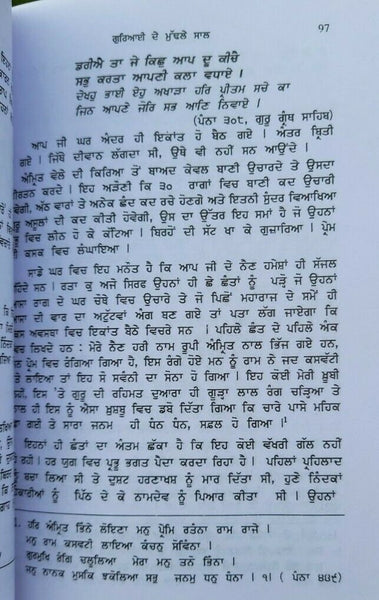 ਗੁਰਿਆਈ ਦੇ ਮੁੱਢਲੇ ਸਾਲ 97
ਡਰੀਐ ਤਾ ਜੇ ਕਿਛੁ ਆਪ ਦੂ ਕੀਚੈ
ਸਭੁ ਕਰਤਾ ਆਪਣੀ ਕਲਾ ਵਧਾਏ ।
ਦੇਖਹੁ ਭਾਈ ਏਹੁ ਅਖਾੜਾ ਹਰਿ ਪ੍ਰੀਤਮ ਸਚੇ ਕਾ
ਜਿਨ ਆਪਣੇ ਜੋਰਿ ਸਭ ਆਣਿ ਨਿਵਾਏ ।
(ਪੰਨਾ ੩੦੮, ਗੁਰੂ ਗ੍ਰੰਥ ਸਾਹਿਬ)
ਆਪ ਜੀ ਘਰ ਅੰਦਰ ਹੀ ਇਕਾਂਤ ਹੋ ਬੈਠ ਗਏ । ਅੰਤਰ ਬ੍ਰਿਤੀ
ਗਏ । ਜਿੱਥੇ ਦੀਵਾਨ ਲੱਗਦਾ ਸੀ, ਉਥੇ ਵੀ ਨਹੀਂ ਸਨ ਆਉਂਦੇ ।
ਅੰਮ੍ਰਿਤ ਵੇਲੇ ਦੀ ਕਿਰਿਆ ਤੋਂ ਬਾਅਦ ਕੇਵਲ ਬਾਣੀ ਉਚਾਰਦੇ ਤੇ ਉਸਦਾ
ਕੀਰਤਨ ਕਰਦੇ । ਇਹ ਅੜੌਣੀ ਕਿ ੩੦ ਰਾਗਾਂ ਵਿਚ ਬਾਣੀ ਕਦ ਉਚਾਰੀ
ਹੋਵੇਗੀ, ਅੱਠ ਵਾਰਾਂ ਤੇ ਅਨੇਕ ਛੰਦ ਕਦ ਰਚੇ ਹੋਣਗੇ ਅਤੇ ਇਤਨੀ ਸੁੰਦਰ ਵਿਆਖਿਆ
ਅਸੂਲਾਂ ਦੀ ਕਦ ਕੀਤੀ ਹੋਵੇਗੀ, ਉਸ ਦਾ ਉੱਤਰ ਇਹ ਸਮਾਂ ਹੈ ਜੋ ਉਹਨਾਂ
ਵਿਚ ਲੀਨ ਹੋ ਕੇ ਕੱਟਿਆ । ਬਿਰਹੋਂ ਦੀ ਸੱਟ ਖਾ ਕੇ ਗੁਜ਼ਾਰਿਆ । ਪ੍ਰੇਮ
ਕਸਕ ਵਿਚ ਲੰਘਾਇਆ ।
ਸਾਡੇ ਘਰ ਵਿਚ ਇਹ ਮਨੌਤ ਹੈ ਕਿ ਆਪ ਜੀ ਦੇ ਨੈਣ ਹਮੇਸ਼ਾਂ ਹੀ ਸੱਜਲ
ਰਹਿੰਦੇ ਸਨ । ਰਤਾ ਕੁ ਅਜੇ ਸਿਰਫ ਉਹਨਾਂ ਹੀ ਛੇ ਛੰਤਾਂ ਨੂੰ ਪੜੋ ਜੋ ਉਹਨਾਂ
ਆਸਾ ਰਾਗ ਦੇ ਘਰ ਚੌਥੇ ਵਿਚ ਉਚਾਰੇ ਤੇ ਜੋ ਪਿਛੋਂ ਮਹਾਰਾਜ ਦੇ ਸਮੇਂ ਹੀ
ਆਸਾ ਦੀ ਵਾਰ ਦਾ ਅਟੁੱਟਵਾਂ ਅੰਗ ਬਣ ਗਏ ਤਾਂ ਪਤਾ ਲੱਗ ਜਾਏਗਾ ਕਿ
ਅਵਸਥਾ ਵਿਚ ਇਕਾਂਤ ਬੈਠੇ ਵਿਚਰੇ ਸਨ । ਪਹਿਲੇ ਛੰਤ ਦੇ ਪਹਿਲੇ ਅੰਕ
ਵਿਚ ਲਿਖਦੇ ਹਨ : ਮੇਰੇ ਨੈਣ ਹਰੀ ਨਾਮ ਰੂਪੀ ਅੰਮ੍ਰਿਤ ਨਾਲ ਭਿੱਜ ਗਏ ਹਨ,
ਪ੍ਰੇਮ ਵਿਚ ਰੰਗਿਆ ਗਿਆ ਹੈ, ਇਸ ਰੰਗੇ ਹੋਏ ਮਨ ਨੂੰ ਰਾਮ ਨੇ ਜਦ ਕਸਵੱਟੀ
ਤੇ ਲਾਇਆ ਤਾਂ ਇਹ ਸੌ ਸਵੰਨੀ ਦਾ ਸੋਨਾ ਹੋ ਗਿਆ । ਇਹ ਕੋਈ ਮੇਰੀ ਖ਼ੂਬੀ
ਨਹੀਂ, ਇਸ 'ਤੇ ਗੁਰੂ ਦੀ ਰਹਿਮਤ ਦੁਆਰਾ ਹੀ ਗੂੜਾ ਲਾਲ ਰੰਗ ਚੜ੍ਹਿਆ ਤੇ
ਨਾਲ ਹੀ ਇਸ ਨੂੰ ਐਸਾ ਖ਼ੁਸ਼ਬੂ ਵਿਚ ਡਬੋ ਦਿੱਤਾ ਗਿਆ ਕਿ ਚਾਰੇ ਪਾਸੇ ਮਹਿਕ
ਗਏ ਤੇ ਸਾਰਾ ਜਨਮ ਹੀ ਧੰਨ ਧੰਨ, ਸਫਲ ਹੋ ਗਿਆ ।¹
ਇਹਨਾਂ ਹੀ ਛੰਤਾਂ ਦਾ ਅੰਤਮ ਛੱਕਾ ਹੈ ਕਿ ਇਹ ਕੋਈ ਵੱਖਰੀ ਗੱਲ ਨਹੀਂ
ਰਹੀ । ਹਰ ਯੁਗ ਵਿਚ ਪ੍ਰਭੂ ਭਗਤ ਪੈਦਾ ਕਰਦਾ ਰਿਹਾ ਹੈ । ਪਹਿਲਾਂ ਪ੍ਰਹਿਲਾਦ
ਬਚਾ ਲਿਆ ਸੀ ਤੇ ਦੁਸ਼ਟ ਹਰਣਾਖਸ਼ ਨੂੰ ਮਾਰ ਦਿੱਤਾ ਸੀ, ਹੁਣੇ ਨਿੰਦਕਾਂ
ਹੰਕਾਰੀਆਂ ਨੂੰ ਪਿੱਠ ਦੇ ਕੇ ਨਾਮਦੇਵ ਨੂੰ ਪਿਆਰ ਕੀਤਾ ਸੀ । ਉਹਨਾਂ
1. ਹਰਿ ਅੰਮ੍ਰਿਤ ਭਿੰਨੇ ਲੋਇਣਾ ਮਨੁ ਪ੍ਰੇਮਿ ਰਤੰਨਾ ਰਾਮ ਰਾਜੇ ।
ਮਨੁ ਰਾਮ ਕਸਵਟੀ ਲਾਇਆ ਕੰਚਨੁ ਸੋਵਿੰਨਾ ।
ਗੁਰਮੁਖਿ ਰੰਗਿ ਚਲੂਲਿਆ ਮੇਰਾ ਮਨੁ ਤਨੋ ਭਿੰਨਾ ।
ਜਨੁ ਨਾਨਕ ਮੁਸਕਿ ਝਕੋਲਿਆ ਸਭੁ ਜਨਮੁ ਧਨੁ ਧੰਨਾ । ੧। ( ਪੰਨਾ ੪੪੯)